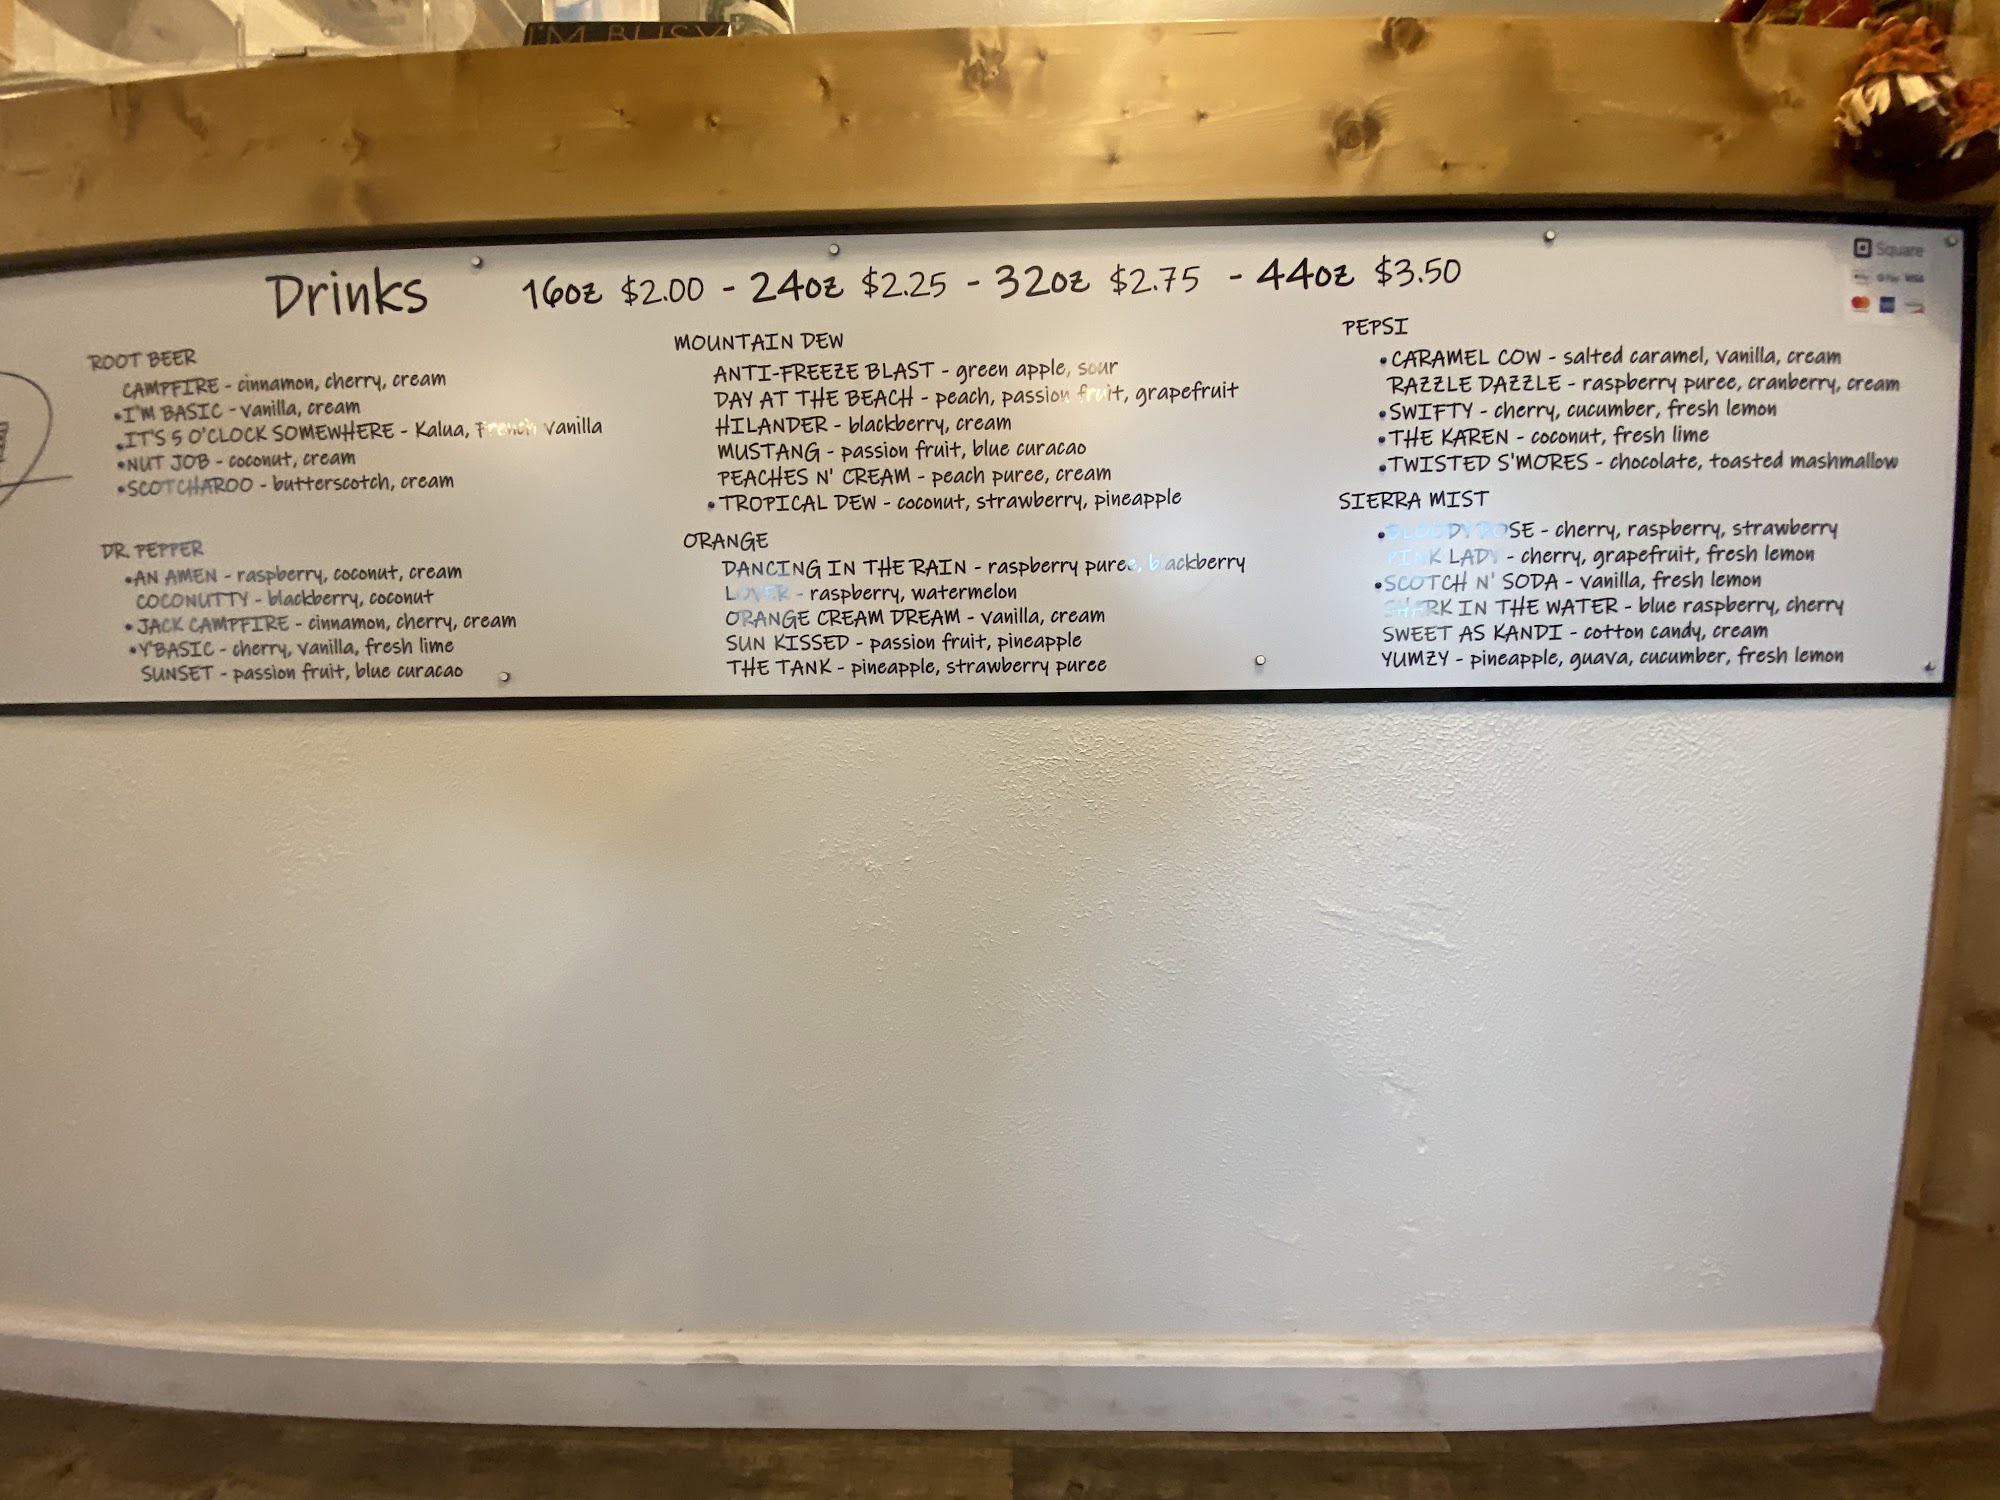 I'M BUSY
Drinks 16oz $2.00 - 24oz $2.25 - 32oz $2.75 - 44oz $3.50
Square
Pay VISA
ROOT BEER
CAMPFIRE - cinnamon, cherry, cream
•I'M BASIC - vanilla, cream
•IT'S 5 O'CLOCK SOMEWHERE - Kalua, French vanilla
•NUT JOB - coconut, cream
•SCOTCHAROO - butterscotch, cream
DR. PEPPER
•AN AMEN - raspberry, coconut, cream
COCONUTTY - blackberry, coconut
•JACK CAMPFIRE - cinnamon, cherry, cream
•Y'BASIC - cherry, vanilla, fresh lime
SUNSET - passion fruit, blue curacao
MOUNTAIN DEW
ANTI-FREEZE BLAST - green apple, sour
DAY AT THE BEACH - peach, passion fruit, grapefruit
HILANDER - blackberry, cream
MUSTANG - passion fruit, blue curacao
PEACHES N' CREAM - peach puree, cream
•TROPICAL DEW - coconut, strawberry, pineapple
ORANGE
DANCING IN THE RAIN - raspberry puree, blackberry
LOVER - raspberry, watermelon
ORANGE CREAM DREAM - vanilla, cream
SUN KISSED - passion fruit, pineapple
THE TANK - pineapple, strawberry puree
PEPSI
•CARAMEL COW - salted caramel, vanilla, cream
RAZZLE DAZZLE - raspberry puree, cranberry, cream
•SWIFTY - cherry, cucumber, fresh lemon
•THE KAREN - coconut, fresh lime
•TWISTED S'MORES - chocolate, toasted mashmallow
SIERRA MIST
•BLOODY ROSE - cherry, raspberry, strawberry
PINK LADY - cherry, grapefruit, fresh lemon
•SCOTCH N' SODA - vanilla, fresh lemon
SHARK IN THE WATER - blue raspberry, cherry
SWEET AS KANDI - cotton candy, cream
YUMZY - pineapple, guava, cucumber, fresh lemon